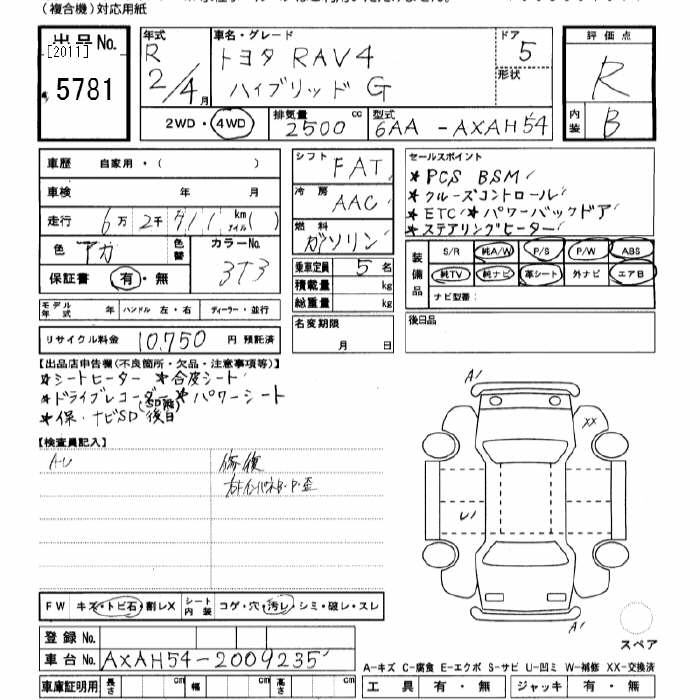 (複合機)対応用紙
出品No. [2011] 5781
年式 R 2/4月
車名・グレード トヨタ RAV4 ハイブリッド G
ドア 5
形状
評価点 R
内装 B
2WD・4WD
排気量 2500 cc
型式 6AA-AXAH54
車歴 自家用・( )
車検 年 月
走行 6万2千911 km マイル( )
色 アカ
色替
カラーNo. 3T3
保証書 有・無
シフト FAT
冷房 AAC
燃料 ガソリン
乗車定員 5名
積載量 kg
総重量 kg
セールスポイント
★PCS BSM
★クルーズコントロール
★ETC ★パワーバックドア
★ステアリングヒーター
装備品 S/R 純A/W P/S P/W ABS
純TV 純ナビ 革シート 外ナビ エアB
ナビ型番:
モデル年式 年 ハンドル 左・右 ディーラー・並行
名変期限 月 日
後日品
リサイクル料金 10,750 円 預託済
【出品店申告欄(不良箇所・欠品・注意事項等)】
★シートヒーター ★合皮シート
★ドライブレコーダー ★パワーシート
★保・ナビSD 後日
【検査員記入】
A・U
修復
A1
XX
U1
A1
FW キズ・トビ石・割レX
シート内装 コゲ・穴・汚レ・シミ・破レ・スレ
登録No.
車台No. AXAH54-2009235
車庫証明用 長さ cm 幅 cm 高さ cm
スペア
A-キズ C-腐食 E-エクボ S-サビ U-凹ミ W-補修 XX-交換済
工具 有・無 ジャッキ 有・無